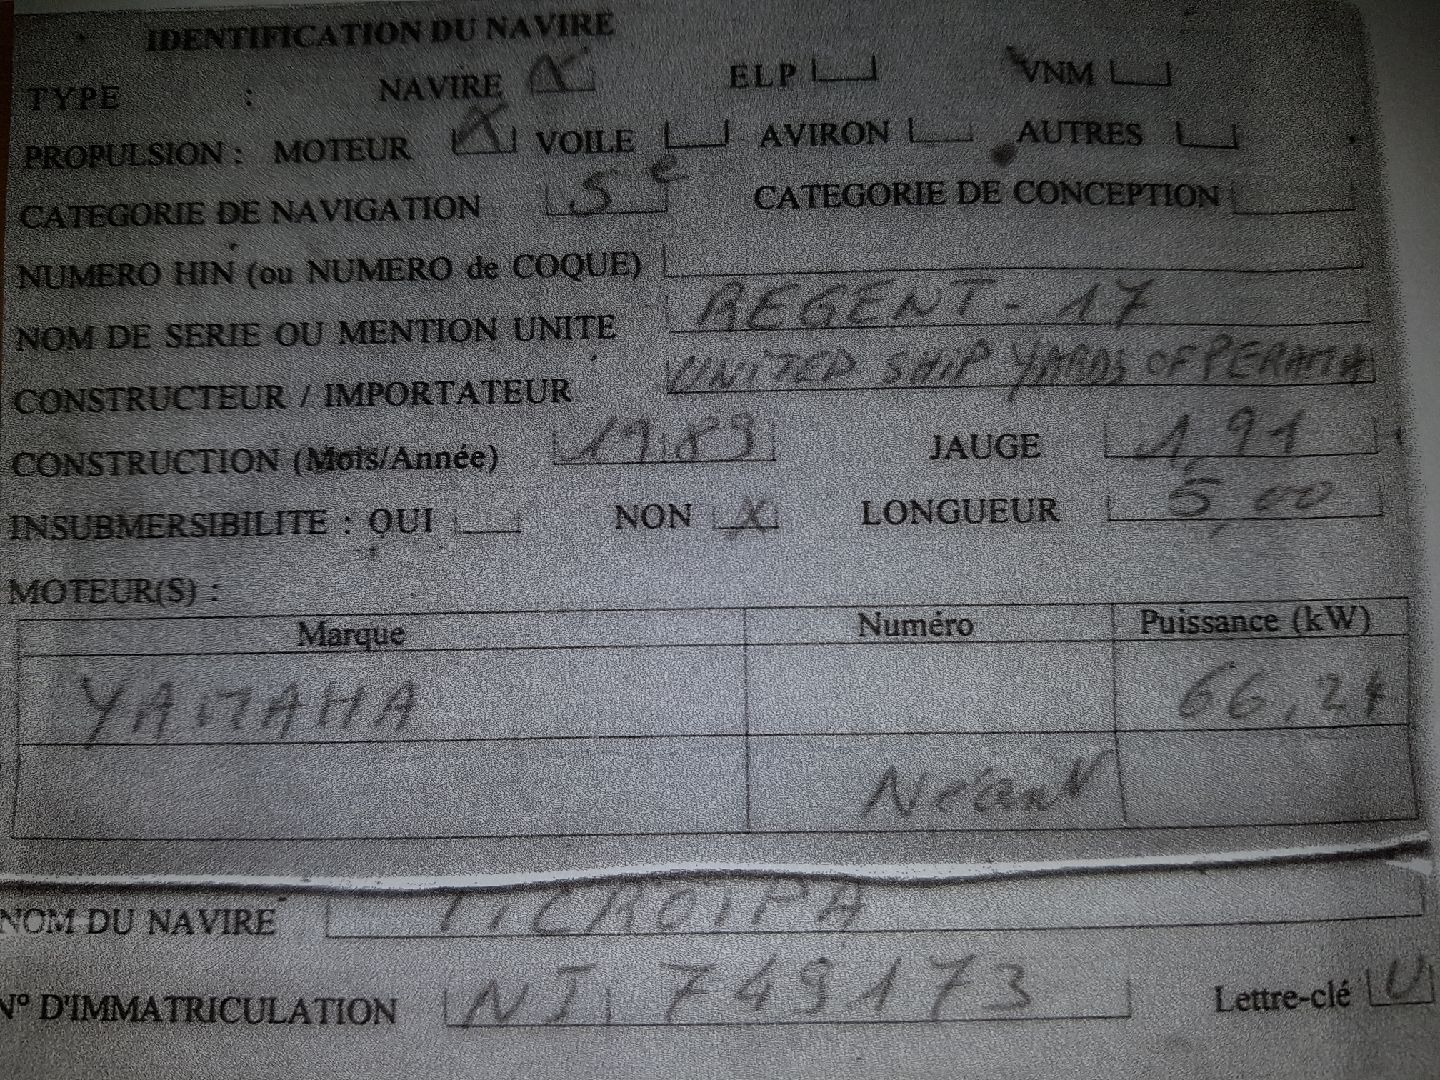 IDENTIFICATION DU NAVIRE
TYPE : NAVIRE X ELP VNM
PROPULSION : MOTEUR X VOILE AVIRON AUTRES
CATEGORIE DE NAVIGATION 5e CATEGORIE DE CONCEPTION
NUMERO HIN (ou NUMERO de COQUE)
NOM DE SERIE OU MENTION UNITE REGENT - 17
CONSTRUCTEUR / IMPORTATEUR UNITED SHIP YARDS OF PERAMA
CONSTRUCTION (Mois/Année) 1989 JAUGE 1,91
INSUBMERSIBILITE : OUI NON X LONGUEUR 5,00
MOTEUR(S) :
Marque Numéro Puissance (kW)
YAMAHA 66,24
Néant
NOM DU NAVIRE
N° D'IMMATRICULATION NI 749173 Lettre-clé U